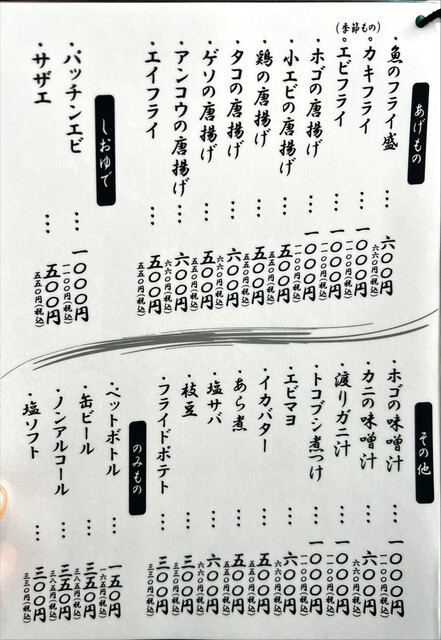 あげもの
・魚のフライ盛 … 六〇〇円
六六〇円(税込)
(季節もの)
・カキフライ … 一〇〇〇円
一一〇〇円(税込)
・エビフライ … 一〇〇〇円
一一〇〇円(税込)
・ホゴの唐揚げ … 一〇〇〇円
一一〇〇円(税込)
・小エビの唐揚げ … 五〇〇円
五五〇円(税込)
・鶏の唐揚げ … 五〇〇円
五五〇円(税込)
・タコの唐揚げ … 六〇〇円
六六〇円(税込)
・ゲソの唐揚げ … 五〇〇円
五五〇円(税込)
・アンコウの唐揚げ … 六〇〇円
六六〇円(税込)
・エイフライ … 五〇〇円
五五〇円(税込)
しおゆで
・パッチンエビ … 一〇〇〇円
一一〇〇円(税込)
・サザエ … 五〇〇円
五五〇円(税込)
その他
・ホゴの味噌汁 … 一〇〇〇円
一一〇〇円(税込)
・カニの味噌汁 … 六〇〇円
六六〇円(税込)
・渡りガニ汁 … 一〇〇〇円
一一〇〇円(税込)
・トコブシ煮つけ … 一〇〇〇円
一一〇〇円(税込)
・エビマヨ … 六〇〇円
六六〇円(税込)
・イカバター … 五〇〇円
五五〇円(税込)
・あら煮 … 五〇〇円
五五〇円(税込)
・塩サバ … 六〇〇円
六六〇円(税込)
・枝豆 … 三〇〇円
三三〇円(税込)
・フライドポテト … 三〇〇円
三三〇円(税込)
のみもの
・ペットボトル … 一五〇円
一六五円(税込)
・缶ビール … 三五〇円
三八五円(税込)
・ノンアルコール … 三五〇円
三八五円(税込)
・塩ソフト … 三〇〇円
三三〇円(税込)